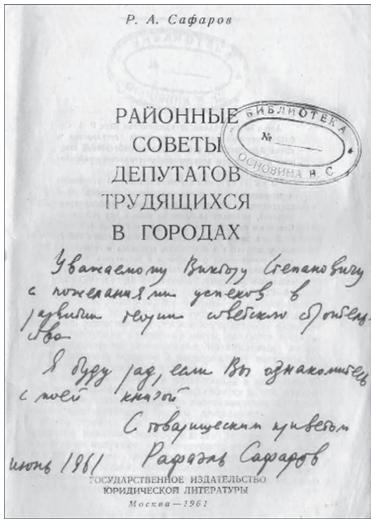 Р. А. Сафаров
РАЙОННЫЕ
СОВЕТЫ
ДЕПУТАТОВ
ТРУДЯЩИХСЯ
В ГОРОДАХ
БИБЛИОТЕКА
№
ОСНОВИНА В. С.
Уважаемому Виктору Степановичу
с пожеланиями успехов в
развитии теории советского строитель-
ства
Я буду рад, если Вы ознакомитесь
с моей книгой
С товарищеским приветом
июнь 1961 Рафаэль Сафаров
ГОСУДАРСТВЕННОЕ ИЗДАТЕЛЬСТВО
ЮРИДИЧЕСКОЙ ЛИТЕРАТУРЫ
Москва—1961